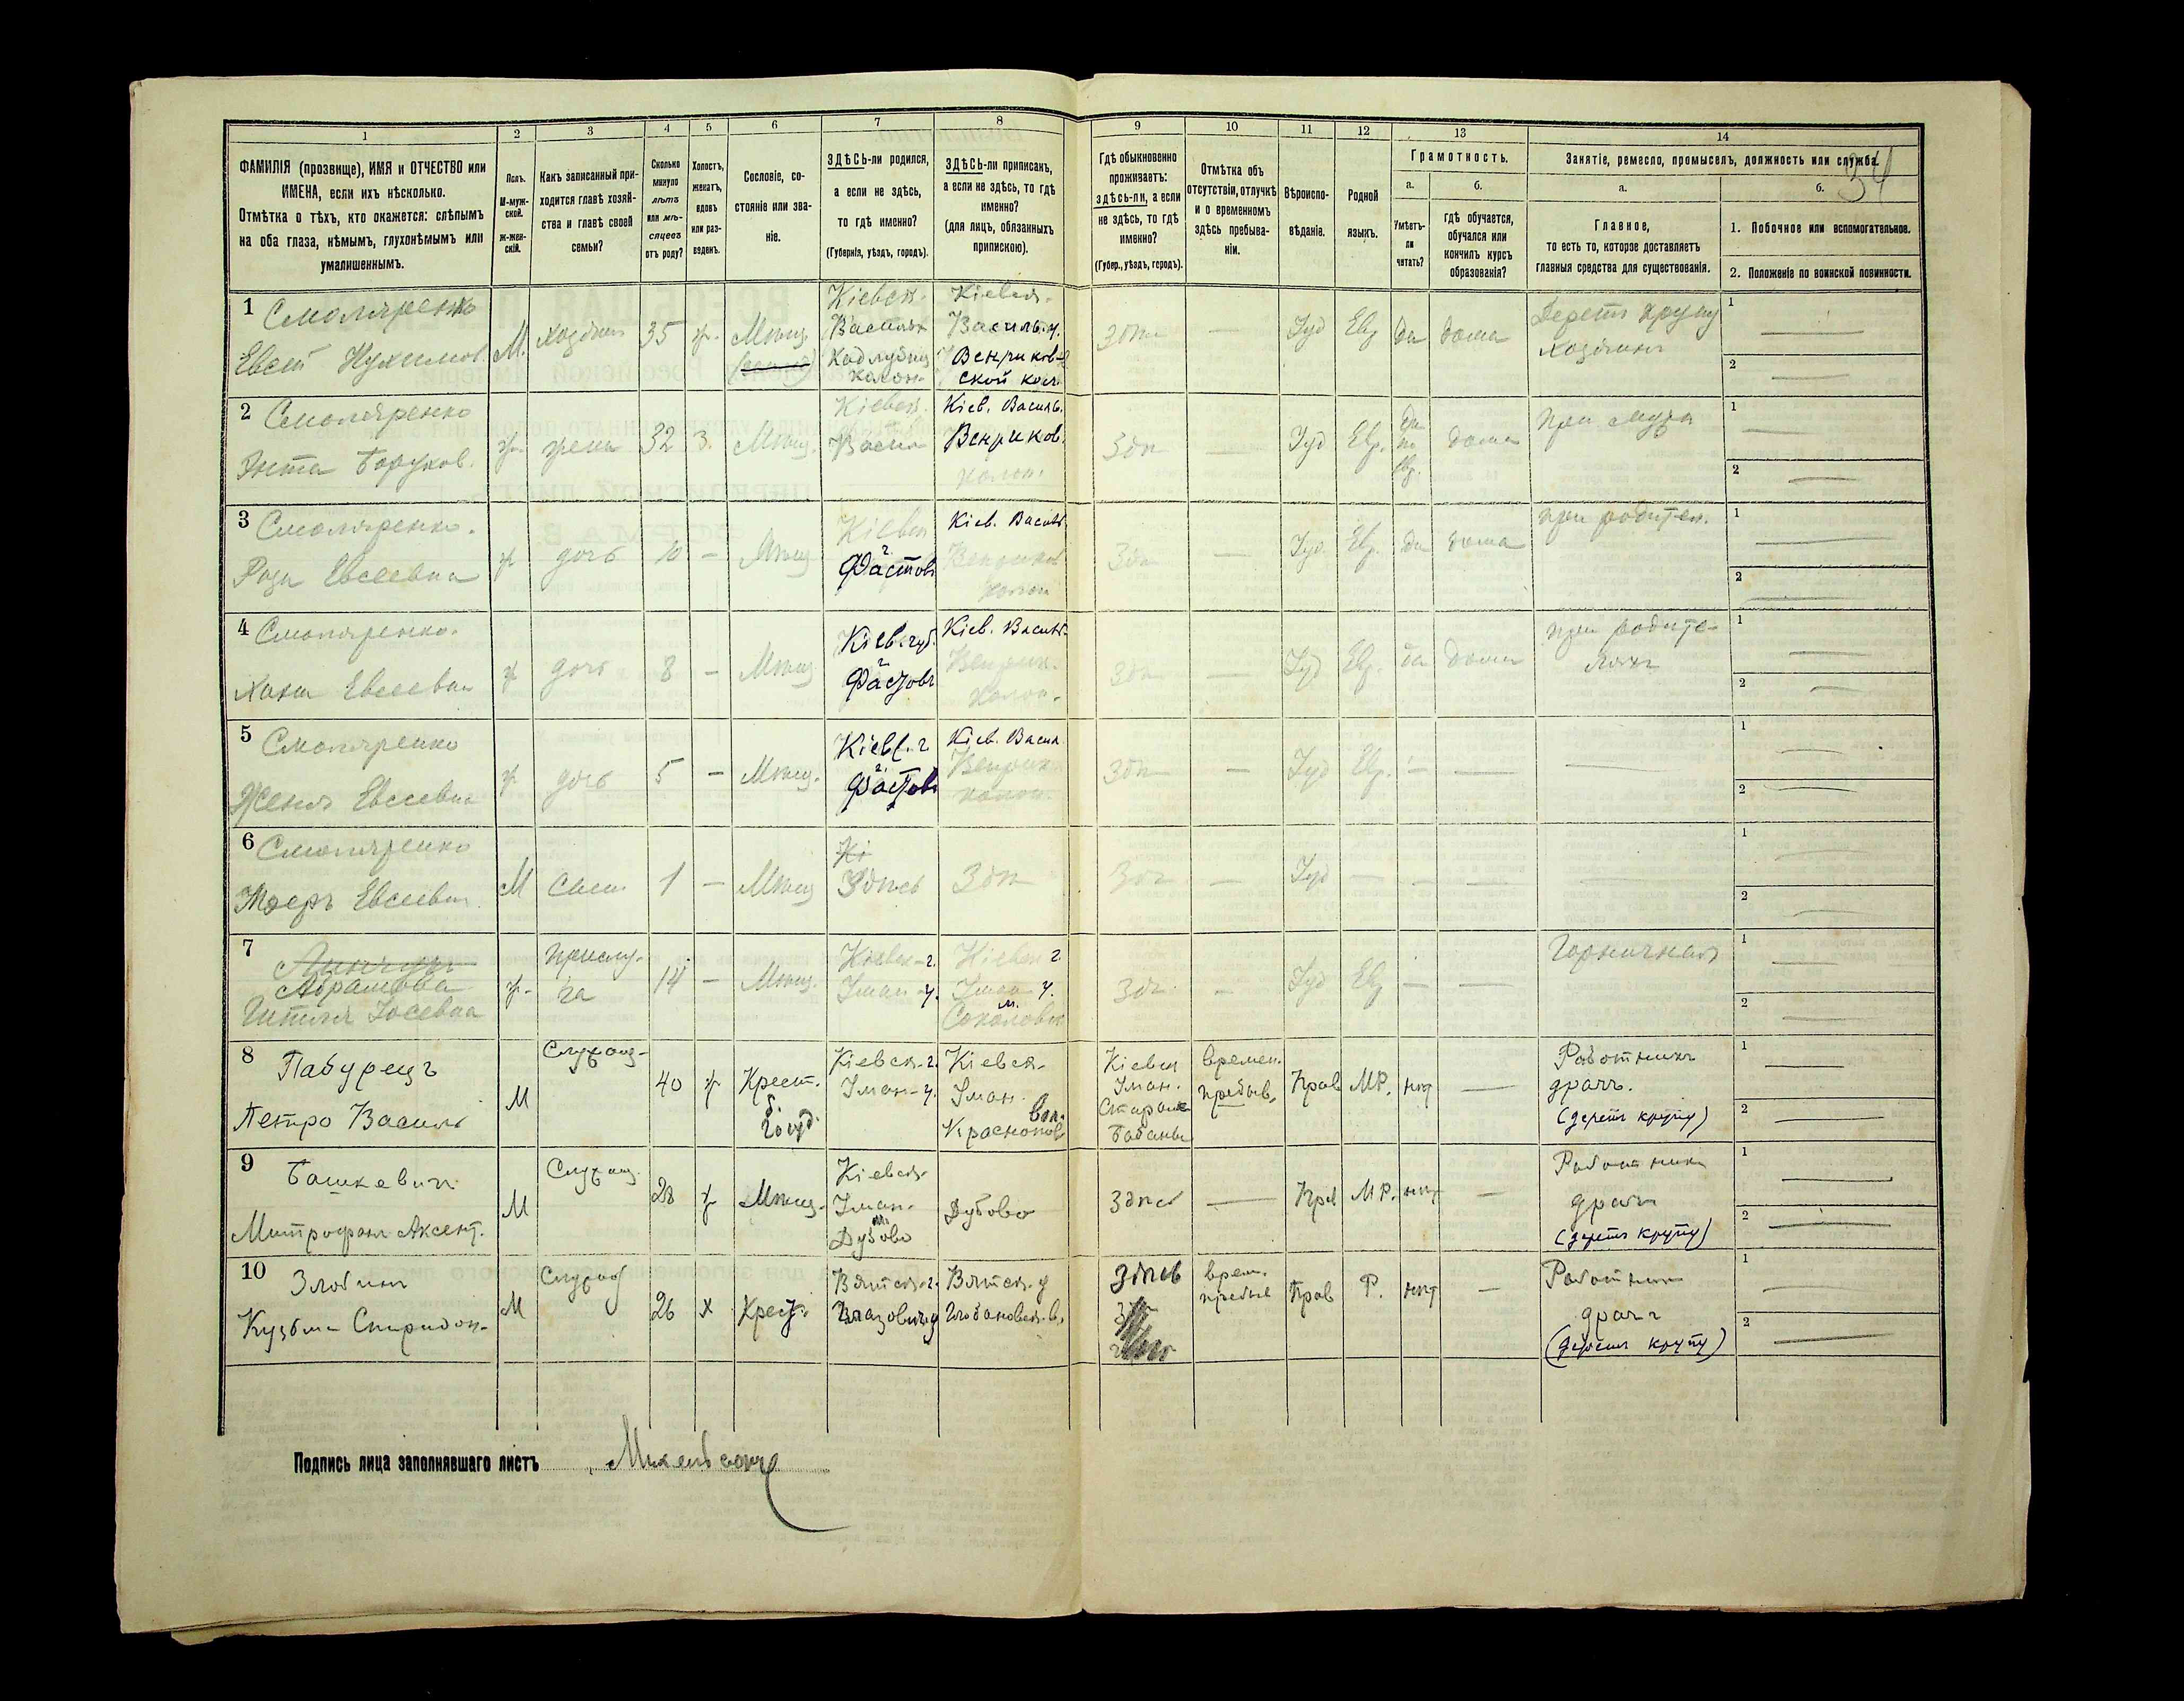 34
1 2 3 4 5 6 7 8 9 10 11 12 13 14
ФАМИЛІЯ (прозвище), ИМЯ и ОТЧЕСТВО или
ИМЕНА, если ихъ нѣсколько.
Отмѣтка о тѣхъ, кто окажется: слѣпымъ
на оба глаза, нѣмымъ, глухонѣмымъ или
умалишеннымъ.
Полъ.
М-муж-
ской.
Ж-жен-
скій.
Какъ записанный при-
ходится главѣ хозяй-
ства и главѣ своей
семьи?
Сколько
минуло
лѣтъ
или мѣ-
сяцевъ
отъ роду?
Холостъ,
женатъ,
вдовъ
или раз-
веденъ.
Сословіе, со-
стояніе или зва-
ніе.
ЗДѢСЬ-ли родился,
а если не здѣсь,
то гдѣ именно?
(Губернія, уѣздъ, городъ).
ЗДѢСЬ-ли приписанъ,
а если не здѣсь, то гдѣ
именно?
(для лицъ, обязанныхъ
припискою).
Гдѣ обыкновенно
проживаетъ:
здѣсь-ли, а если
не здѣсь, то гдѣ
именно?
(Губер., уѣздъ, городъ).
Отмѣтка объ
отсутствіи, отлучкѣ
и о временномъ
здѣсь пребыва-
ніи.
Вѣроиспо-
вѣданіе.
Родной
языкъ.
Грамотность.
а.
Умѣетъ-
ли
читать?
б.
гдѣ обучается,
обучался или
кончилъ курсъ
образованія?
Занятіе, ремесло, промыселъ, должность или служба.
а.
Главное,
то есть то, которое доставляетъ
главныя средства для существованія.
б.
1. Побочное или вспомогательное.
2. Положеніе по воинской повинности.
1 Смоляренко
Евсей Нухимов.
М. хозяин 35 ж. Мѣщ.
Кіевск.
Васильк
Кадлубиц
колон.
Кіевск.
Васильк. у.
Венриков-
ской кол.
Здѣс — Іуд Евр да дома
Дерет крупу
хозяинъ
1 —
2 —
2 Смоляренко
Энта Борухов.
ж. жена 32 З. Мѣщ.
Кіевск.
Васил
Кіев. Василь.
Венриков.
колон.
Здѣ — Іуд Евр.
да
по
евр.
дома
при мужѣ
1 —
2 —
3 Смоляренко.
Роза Евсеевна
ж дочь 10 — Мѣщ
Кіевск
г.
Фастовъ
Кіев. Василь.
Венриков
колон
Здѣ — Іуд. Евр. да дома
при родител.
1 —
2 —
4 Смоляренко.
Хана Евсеевна
ж дочь 8 — Мѣщ
Кіев. губ.
г.
Фастовъ
Кіев. Василь.
Венрик.
колон.
Здѣ — Іуд Евр. да дома
при родите-
ляхъ
1 —
2 —
5 Смоляренко
Женя Евсеевна
ж дочь 5 — Мѣщ.
Кіевс. г
г.
Фастовъ
Кіев. Васил.
Венрик
колон.
Здѣ — Іуд Евр. — — —
1 —
2 —
6 Смоляренко
Мееръ Евсеевич
М Сын 1 — Мѣщ
Здѣсь Здѣ Здѣ — Іуд — — — —
1 —
2 —
7
Абрамова
Гитля Іосевна
ж.
прислу-
га
14 — Мѣщ.
Кіевск-г.
Уман-у.
Кіевск г
Уман у.
м.
Соколовк
Здѣ. — Іуд Евр — —
Горничная
1 —
2 —
8 Пабурецъ
Петро Василь
М Служащ. 40 ж
Крест.
б.
Госуд.
Кіевск-г.
Уман-у.
Кіевск.
Уман.
вол.
Краснопол
Кіевск
Уман.
Старые
Бабаны
времен.
пребыв.
Прав МР. нѣт —
Работникъ
драчъ.
(дерет крупу)
1 —
2 —
9 Башкевич
Митрофан Аксент.
М Служащ. 28 ж Мѣщ.
Кіевск.
Уман.
м.
Дубово
Дубово
Здѣсь — Прав МР. нѣт —
Работник
драч
(дерет крупу)
1 —
2 —
10 Злобин
Кузьма Спиридон.
М Служащ 26 х Крест.
Вятск. г.
Глазовск. у
Вятск. у
Здѣсь
врем.
пребыв
Прав Р. нѣт —
Работник
драч
(дерет крупу)
1 —
2 —
Подпись лица заполнявшаго листъ